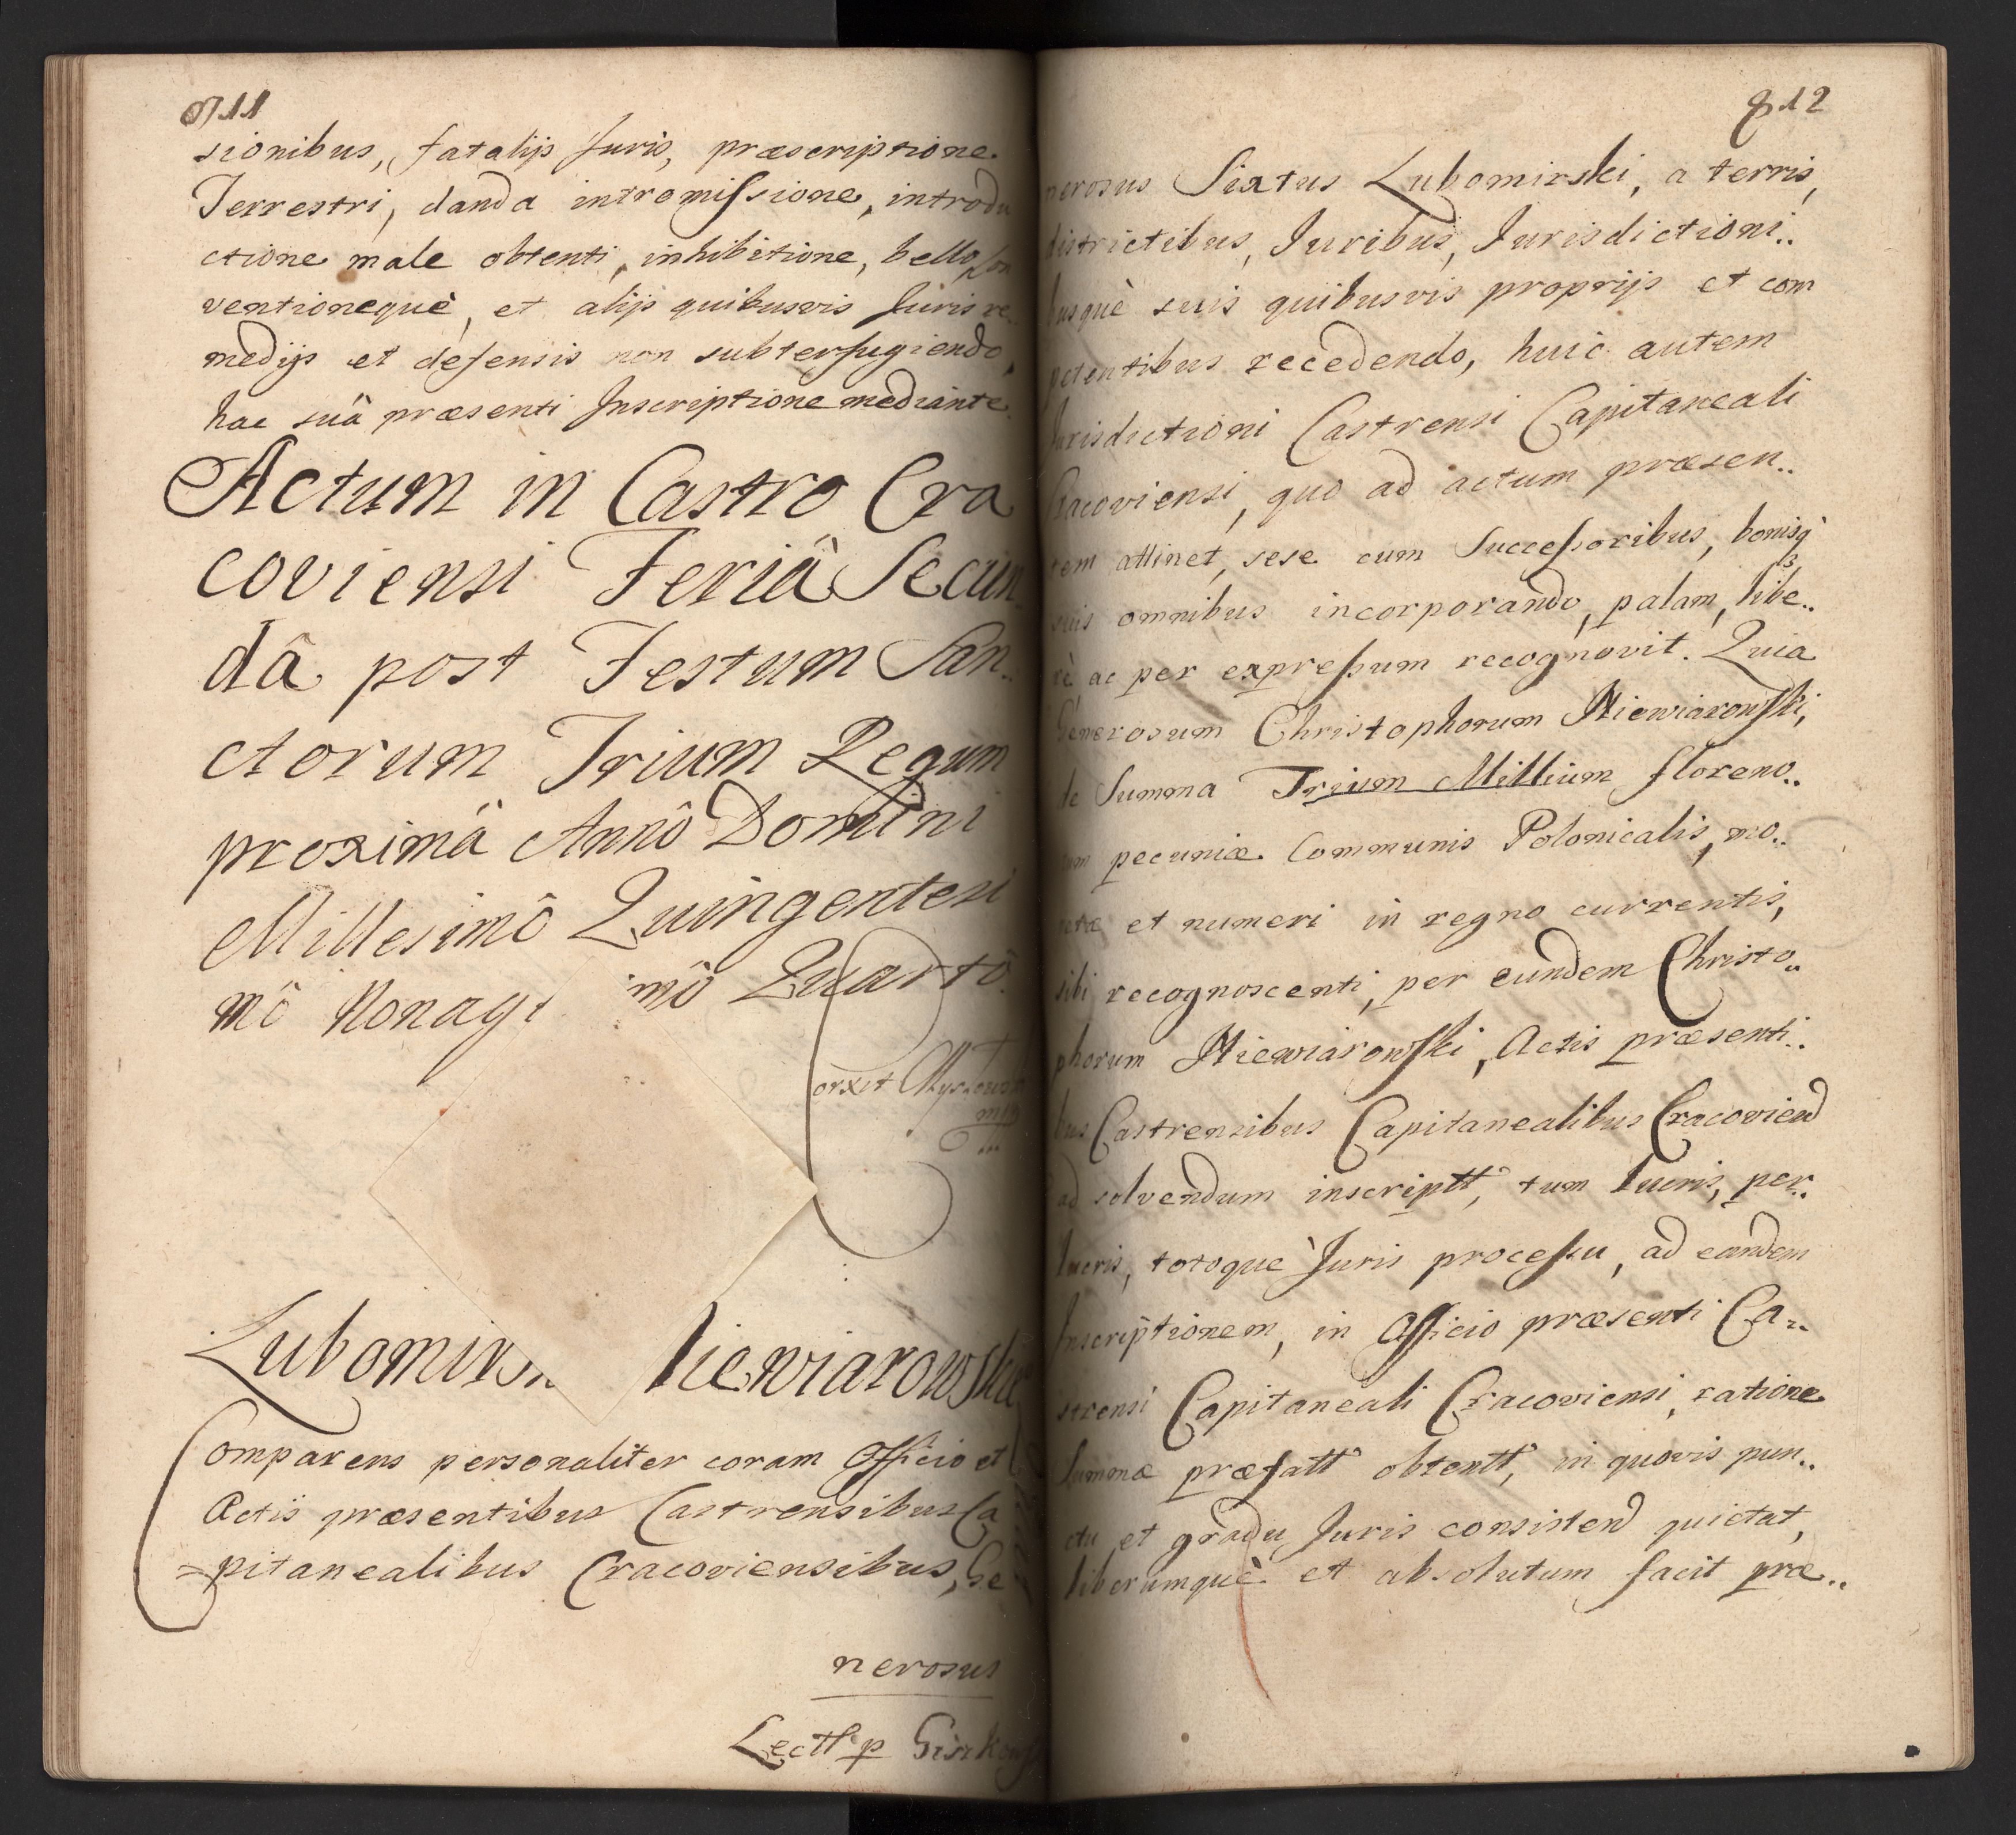 11
sionibus, fatalijs Juris, præscriptione
Terrestri, danda intromissione, introdu
ctione male obtenti, inhibitione, bello, con
ventionequè, et alijs quibusvis Juris re
medijs et defensis non subterfugiendo,
hac suâ præsenti Inscriptione mediante.
Actum in Castro Cra
coviensi Feriâ Secun
dâ post Festum San..
ctorum Trium Regum
proximâ Annô Domini
Millesimô Quingentesi
mô Nonagi mô Quartô.
Lubomirs Niewiarowski
Comparens personaliter coram Officio et
Actis præsentibus Castrensibus Ca
=pitanealibus Cracoviensibus, Ge
nerosus
Lectt p
12
nerosus Sixtus Lubomirski, a terris,
districtibus, Juribus, Jurisdictioni..
busquè suis quibusvis proprijs et com
petentibus recedendo, huic autem
Jurisdictioni Castrensi Capitaneali
Cracoviensi, quo ad actum præsen..
tem attinet, sese cum Successoribus, bonisq
suis omnibus incorporando, palam, libe..
rè ac per expressum recognovit. Quia
Generosum Christophorum Niewiarowski,
de Summa Trium Millium floreno..
rum pecuniæ Communis Polonicalis, mo..
netæ et numeri in regno currentis,
sibi recognoscenti, per eundem Christo..
phorum Niewiarowski, Actis præsenti..
bus Castrensibus Capitanealibus Cracoviend
ad solvendum inscriptt, tum lucris, per..
lucris, totoque Juris processu, ad eandem
Inscriptionem, in Officio præsenti Ca..
strensi Capitaneali Cracoviensi, ratione
Summæ præfatt obtentt, in quovis pun..
ctu et gradu Juris consistend quietat,
liberumquè et absolutum facit præ..